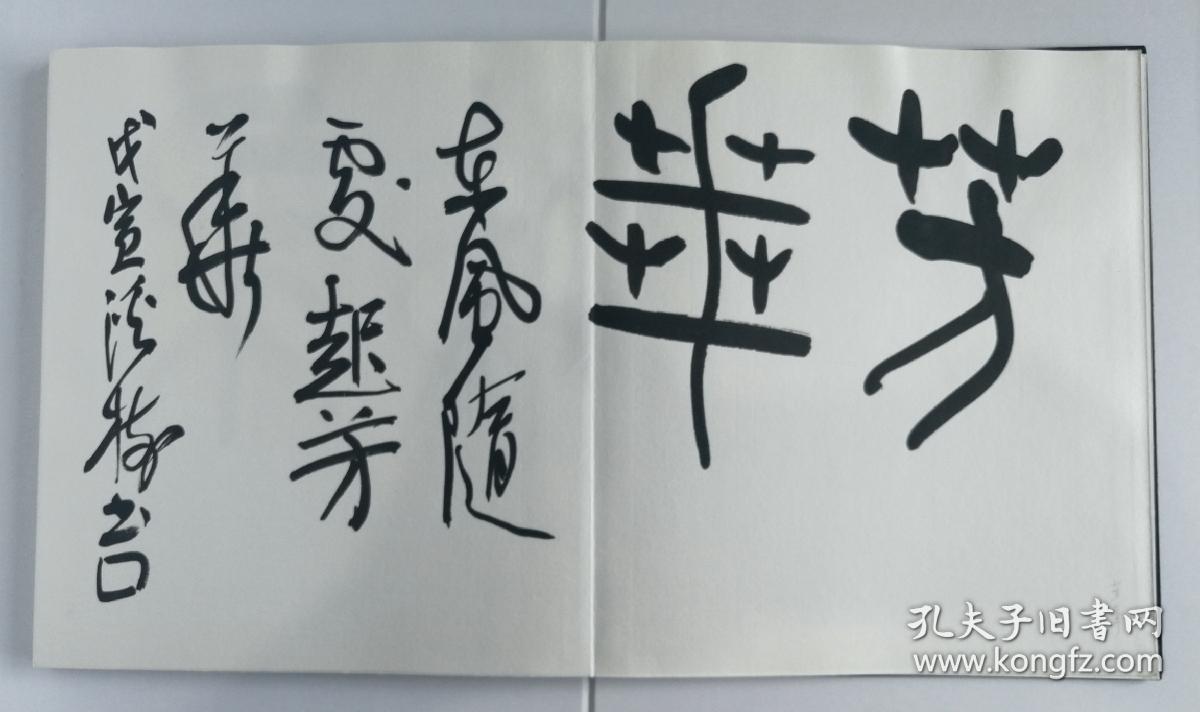 芳
華
東風隨
處起芳
華
孔夫子旧書网
www.kongfz.com